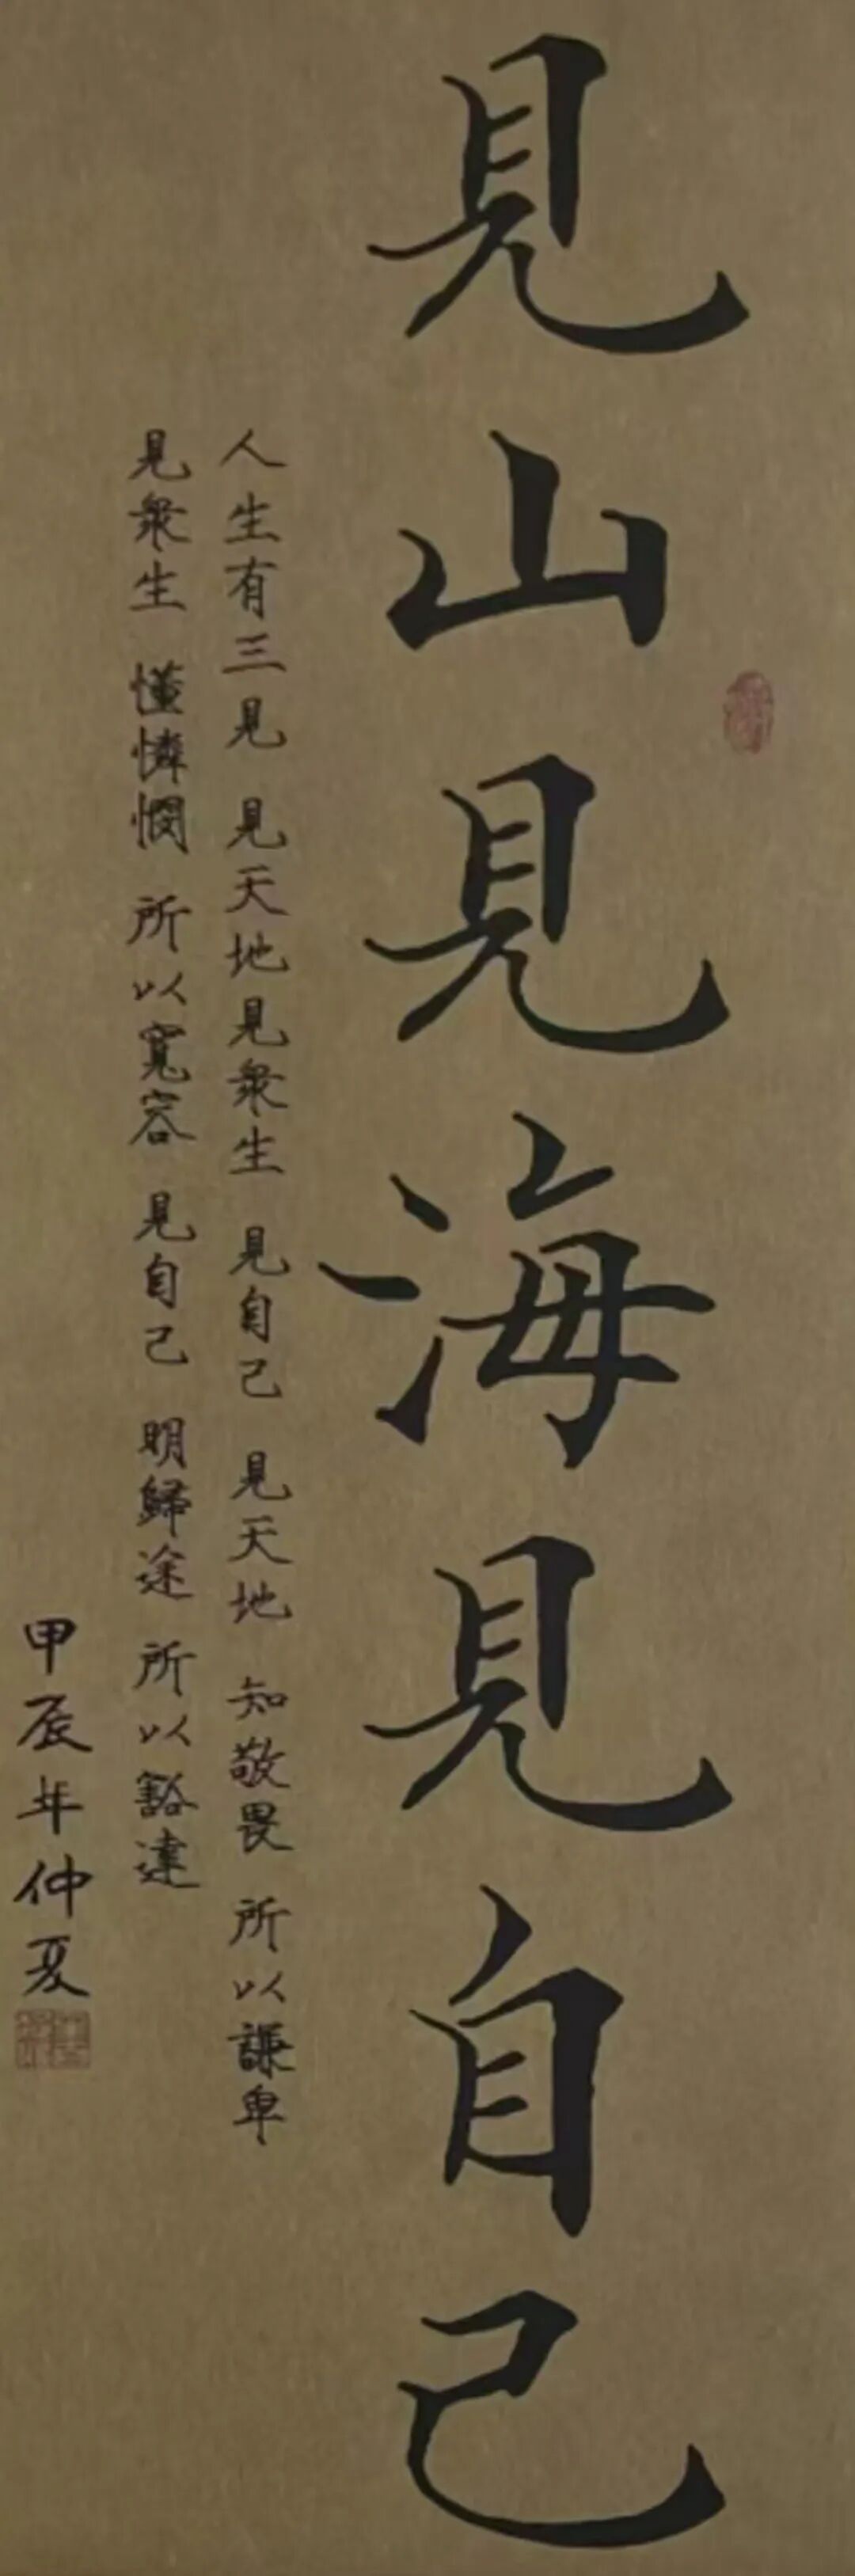 見山見海見自己
人生有三見 見天地見衆生 見自己 見天地 知敬畏 所以謙卑
見衆生 懂憐憫 所以寬容 見自己 明歸途 所以豁達
甲辰年仲夏